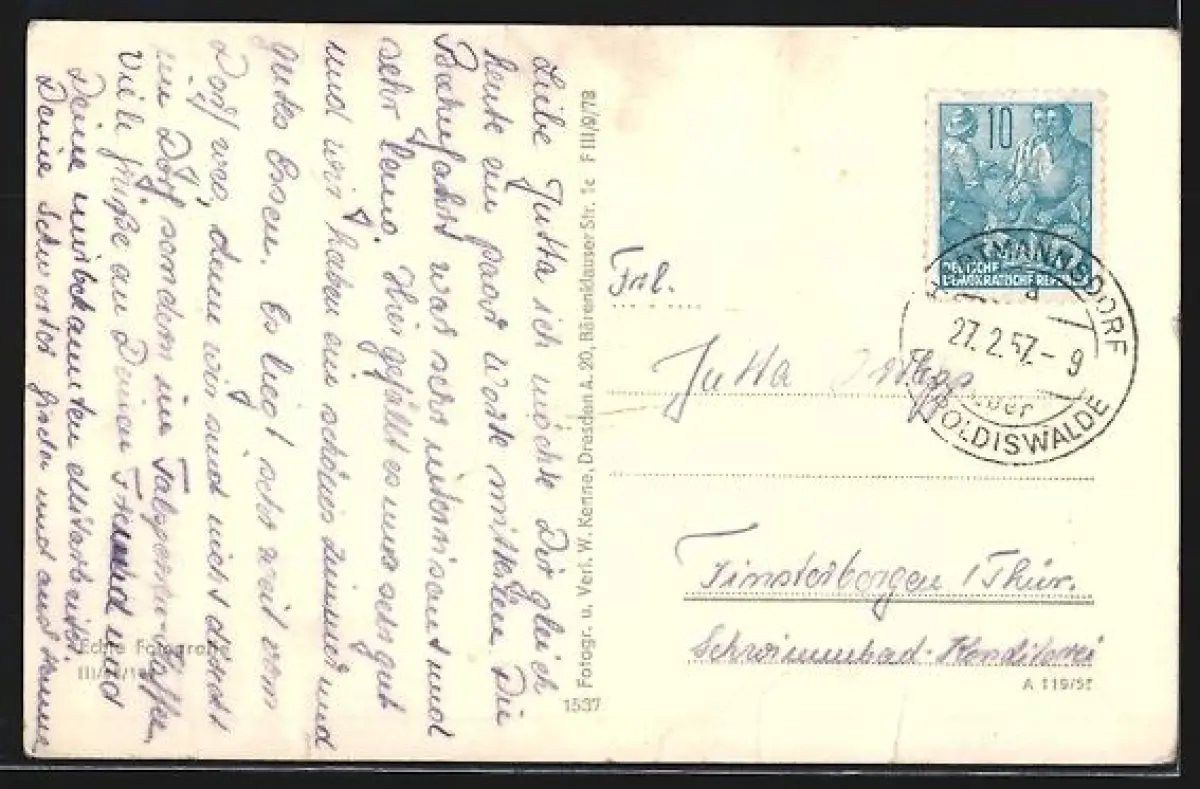 Liebe Jutta ich möchte Dir gleich
heute ein paar Worte mitteilen. Die
Bahnfahrt war sehr interrisant und
sehr lang. Hier gefällt es uns sehr gut
und wir haben ein schönes Zimmer und
gutes Essen. Es liegt sehr weit vom
Dorf weg, denn wir sind nicht direckt
im Dorf sondern im Talsperren-Kaffee.
Viele Grüße an Deinen Freund und
Deine unbekannten Mitarbeiter
Deine Schwester Gisela und
Echte Fotografie
1537 Fotogr. u. Verl. W. Kenne, Dresden A. 20, Bärenklauser Str. 1c F III/9/78
10
DEUTSCHE
DEMOKRATISCHE REPUBLIK
HARTMANNSDORF
27.2.57.-9
über
DIPPOLDISWALDE
Frl.
Jutta
Finsterbergen /Thür.
Schwimmbad-Konditorei
A 119/57